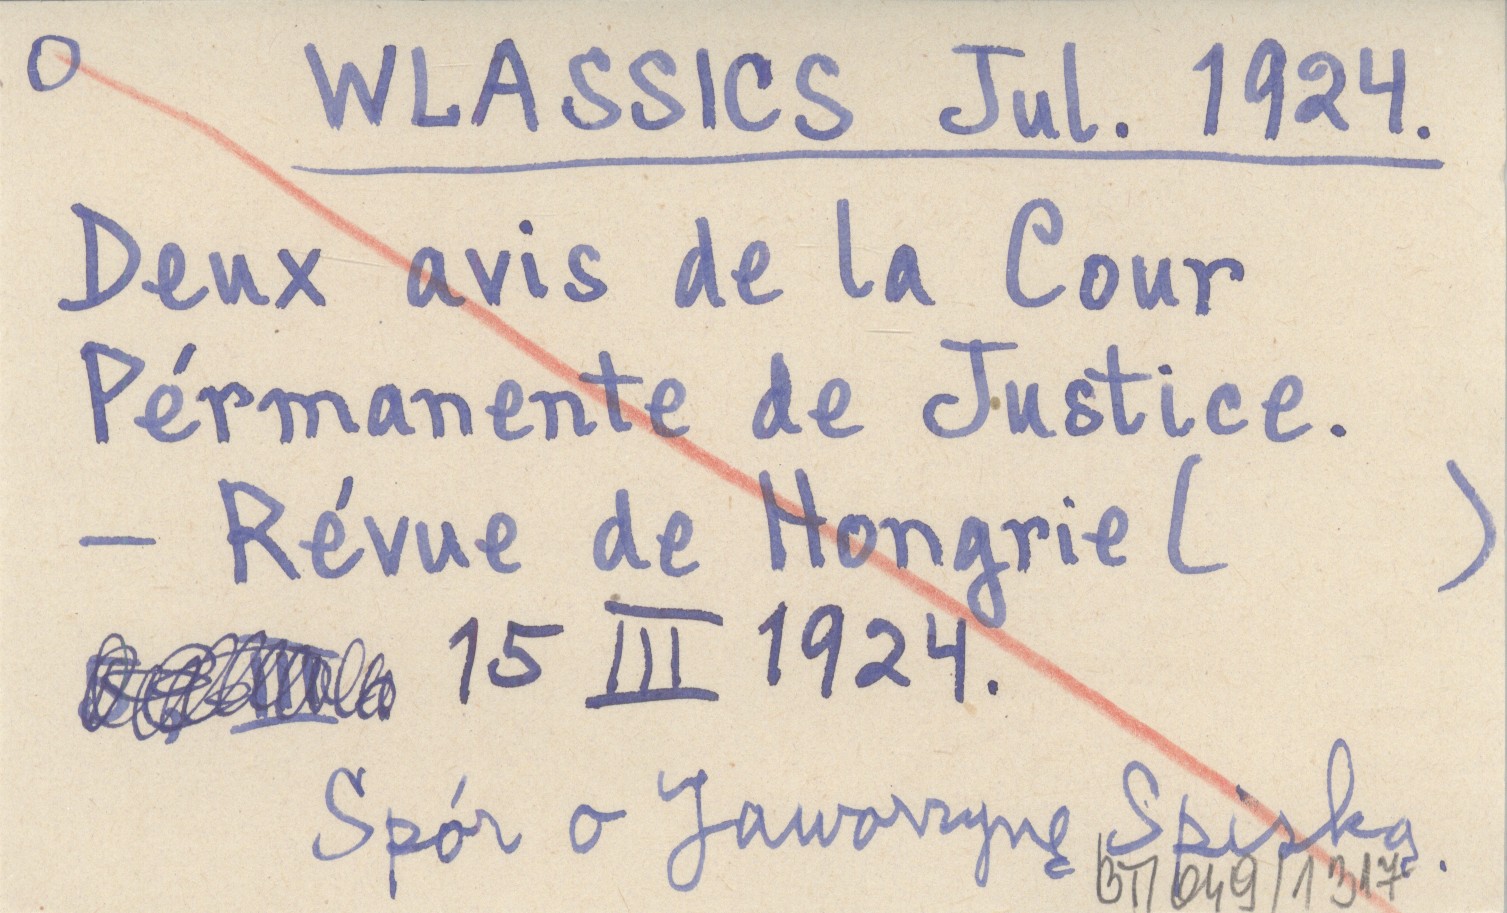 O WLASSICS Jul. 1924.
Deux avis de la Cour
Pérmanente de Justice.
— Révue de Hongrie ( )
15 III 1924.
Spór o Jaworzynę Spiską.
BT/049/1317